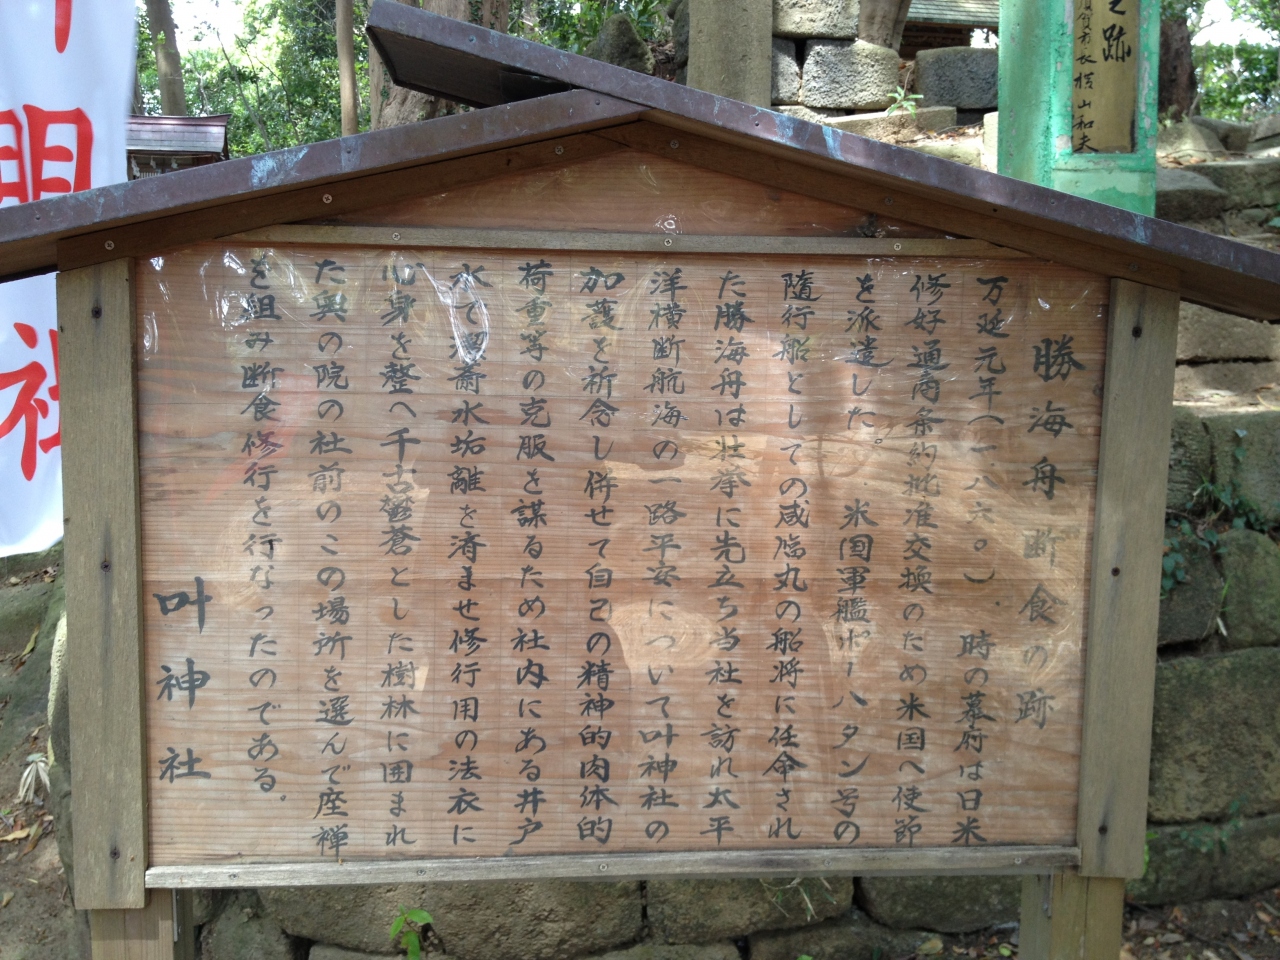 勝海舟断食の跡
万延元年(一八六〇)時の幕府は日米
修好通商条約批准交換のため米国へ使節
を派遣した。 米国軍艦ポーハタン号の
隨行船としての咸臨丸の船将に任命され
た勝海舟は壮挙に先立ち当社を訪れ太平
洋横断航海の一路平安について叶神社の
加護を祈念し併せて自己の精神的肉体的
荷重等の克服を謀るため社内にある井戸
水で潔斎水垢離を済ませ修行用の法衣に
心身を整へ千古鬱蒼とした樹林に囲まれ
た奥の院の社前のこの場所を選んで座禅
を組み断食修行を行なったのである。
叶神社
之跡
横山和夫
明
社